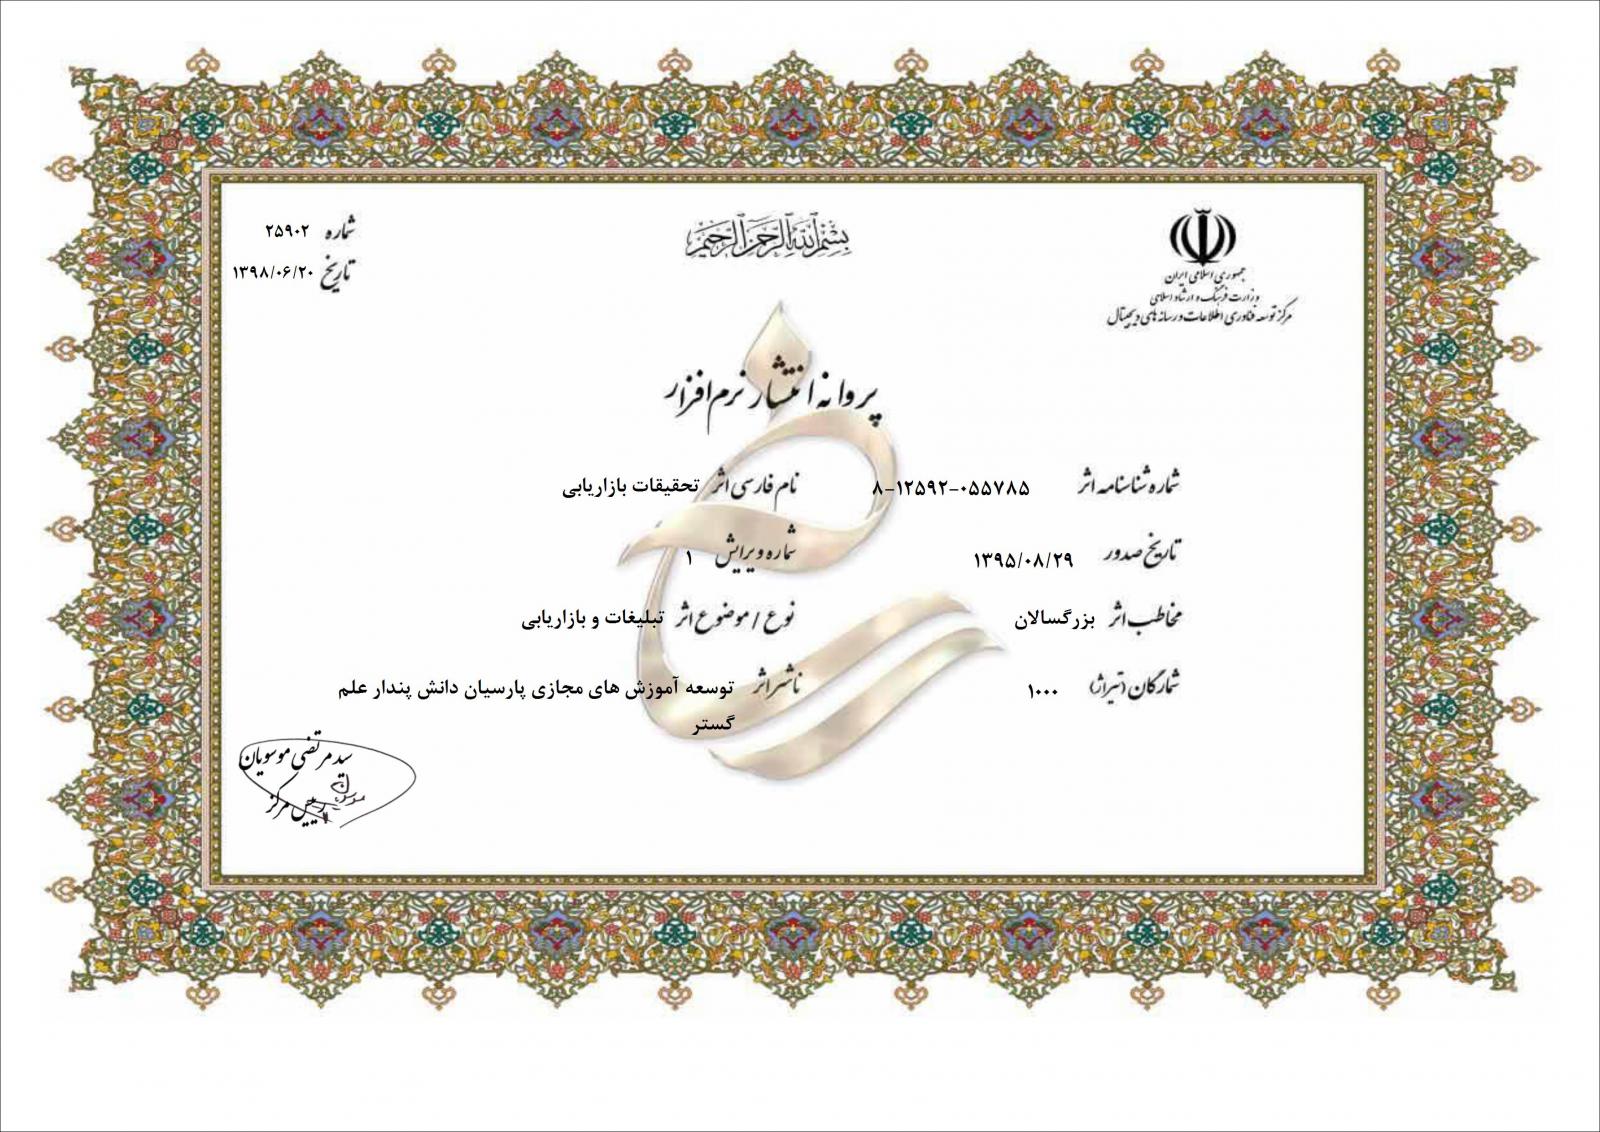 بسم الله الرحمن الرحیم
جمهوری اسلامی ایران
وزارت فرهنگ و ارشاد اسلامی
مرکز توسعه فناوری اطلاعات و رسانه های دیجیتال
شماره ۲۵۹۰۲
تاریخ ۱۳۹۸/۰۶/۲۰
پروانه انتشار نرم افزار
شماره شناسنامه اثر ۸-۱۲۵۹۲-۰۵۵۷۸۵ نام فارسی اثر تحقیقات بازاریابی
تاریخ صدور ۱۳۹۵/۰۸/۲۹ شماره ویرایش ۱
مخاطب اثر بزرگسالان نوع / موضوع اثر تبلیغات و بازاریابی
شمارگان (تیراژ) ۱۰۰۰ ناشر اثر توسعه آموزش های مجازی پارسیان دانش پندار علم
گستر
سید مرتضی موسویان
رییس مرکز